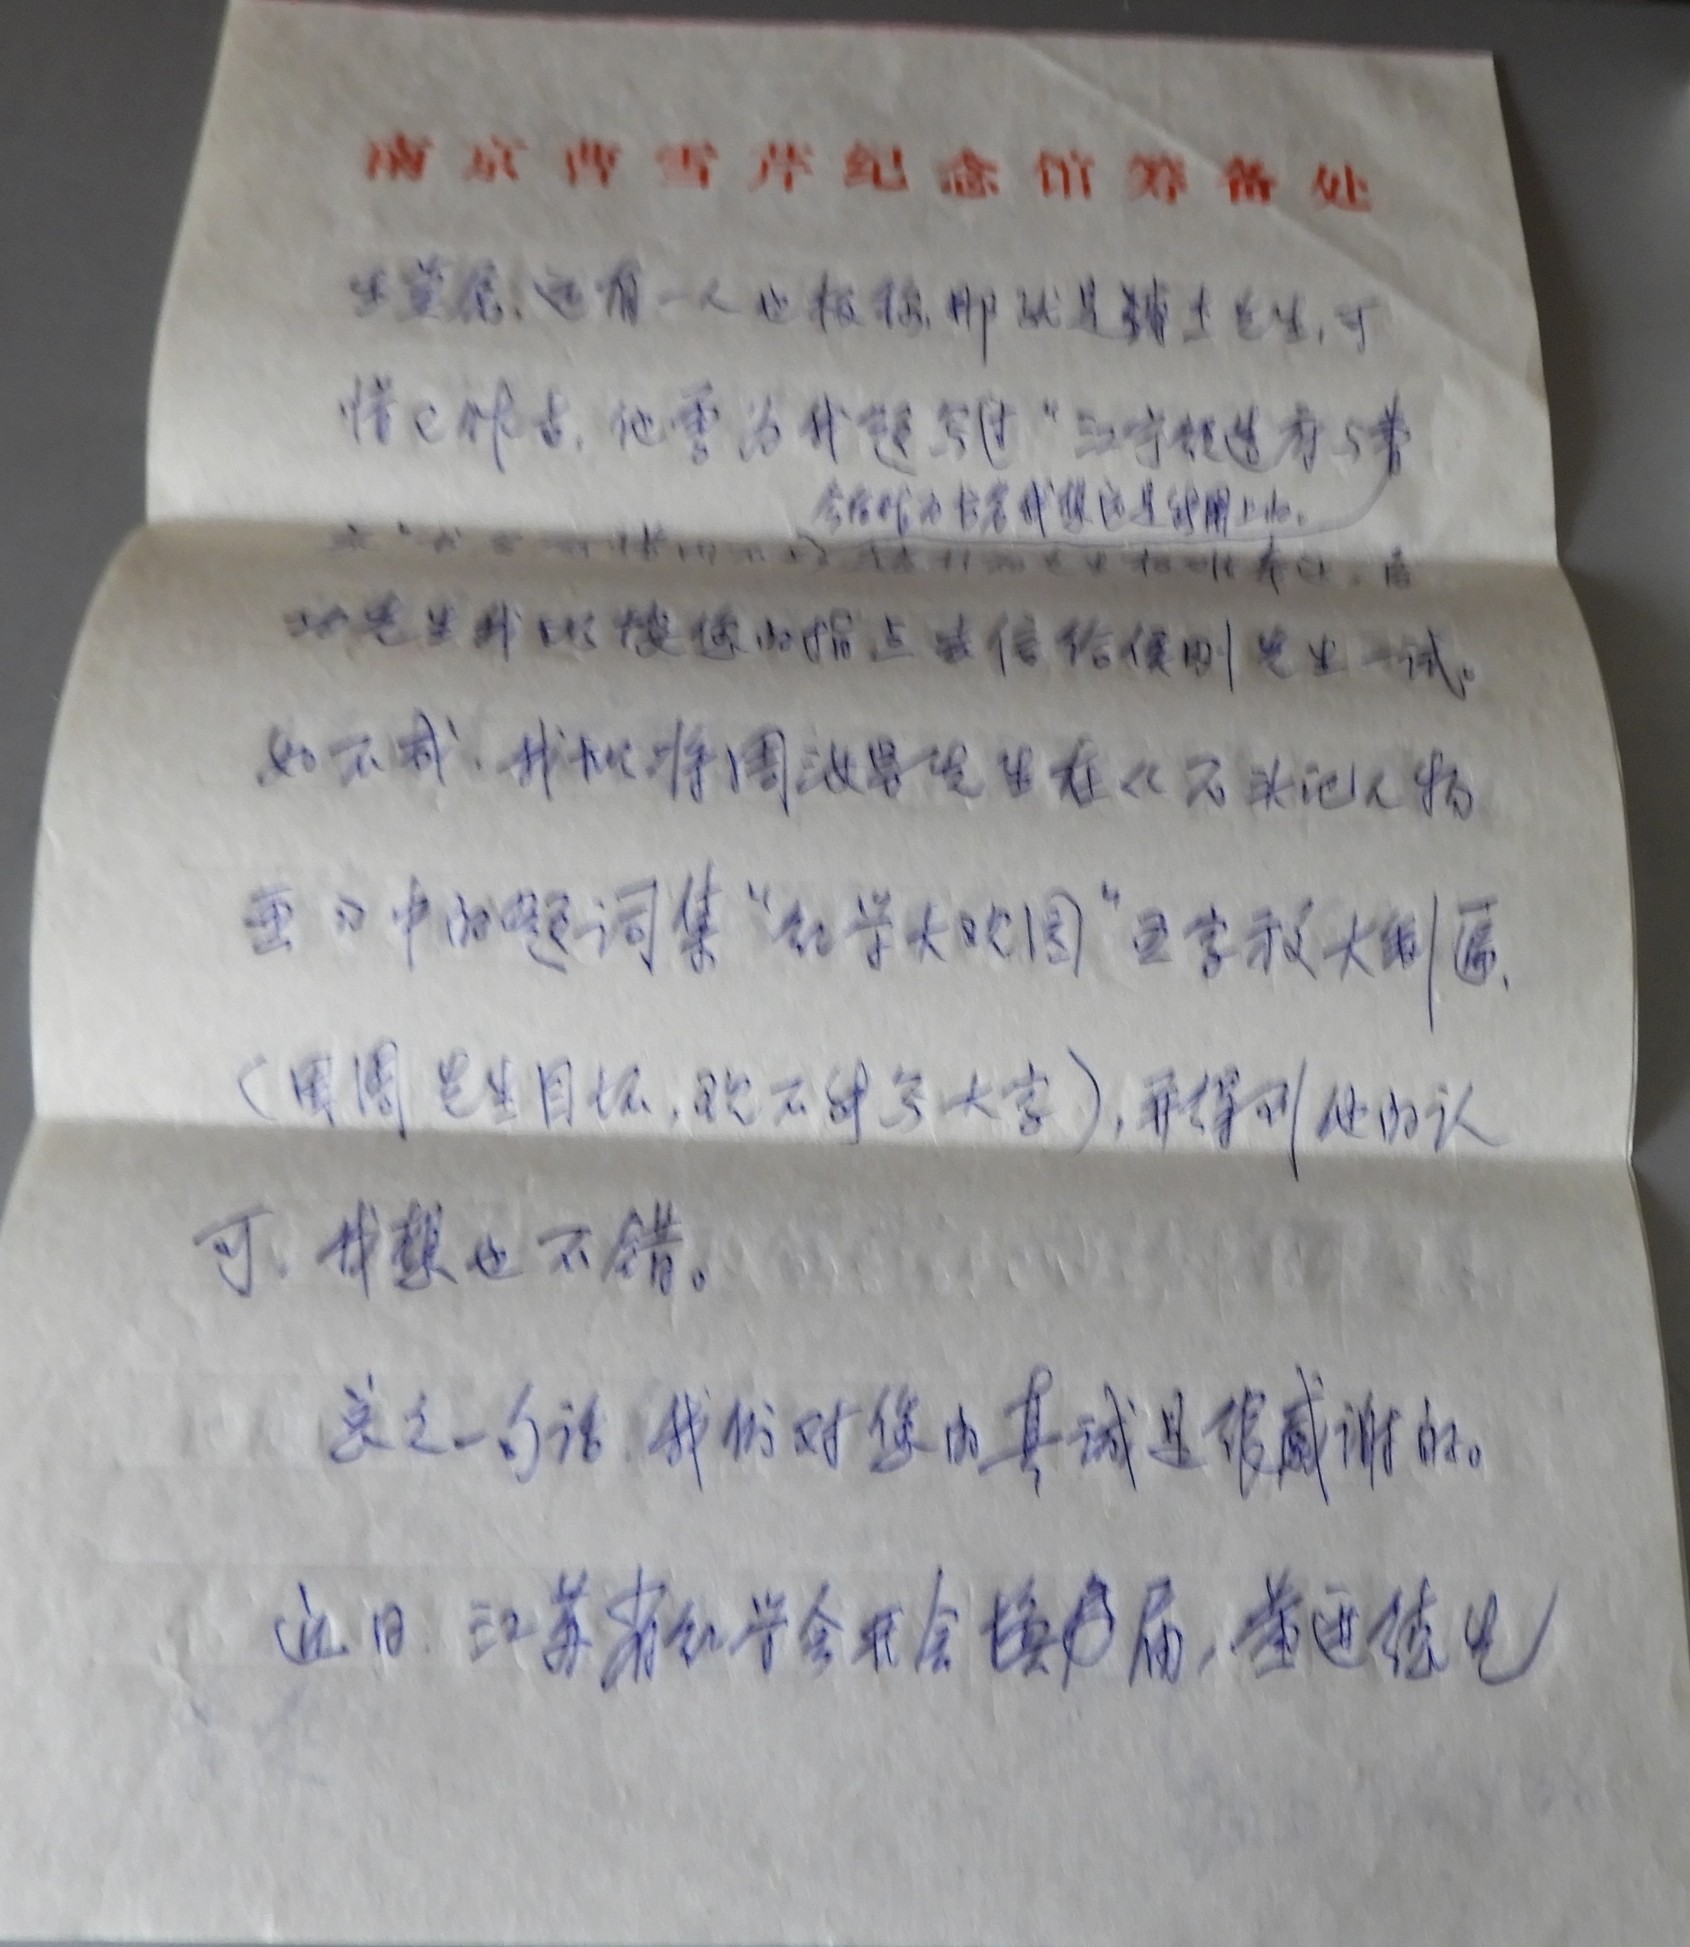 南京曹雪芹纪念馆筹备处
还有一人也极称,那就是 先生,可
惜已作古,他曾为我题写过“江宁织造府与曹
我想 是能用上的。
功先生我 按您的指点去信给 先生一试。
如不成,我拟将周汝昌先生在《石头记人物
画》中的题词集“红学大观园”五字放大制匾,
(因周先生目坏,已不能写大字),并得到他的认
可,我想也不错。
总之一句话,我们对您的真诚是很感谢的。
近日江苏省红学会开会换届,